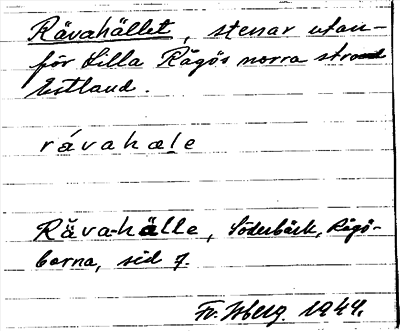 Rävahället, stenar utan-
för Lilla Rågös norra strand
Estland.
rávahale
Råva-hälle, Söderbäck, Rågö-
borna, sid 7.
Fr. Wberg. 1944.